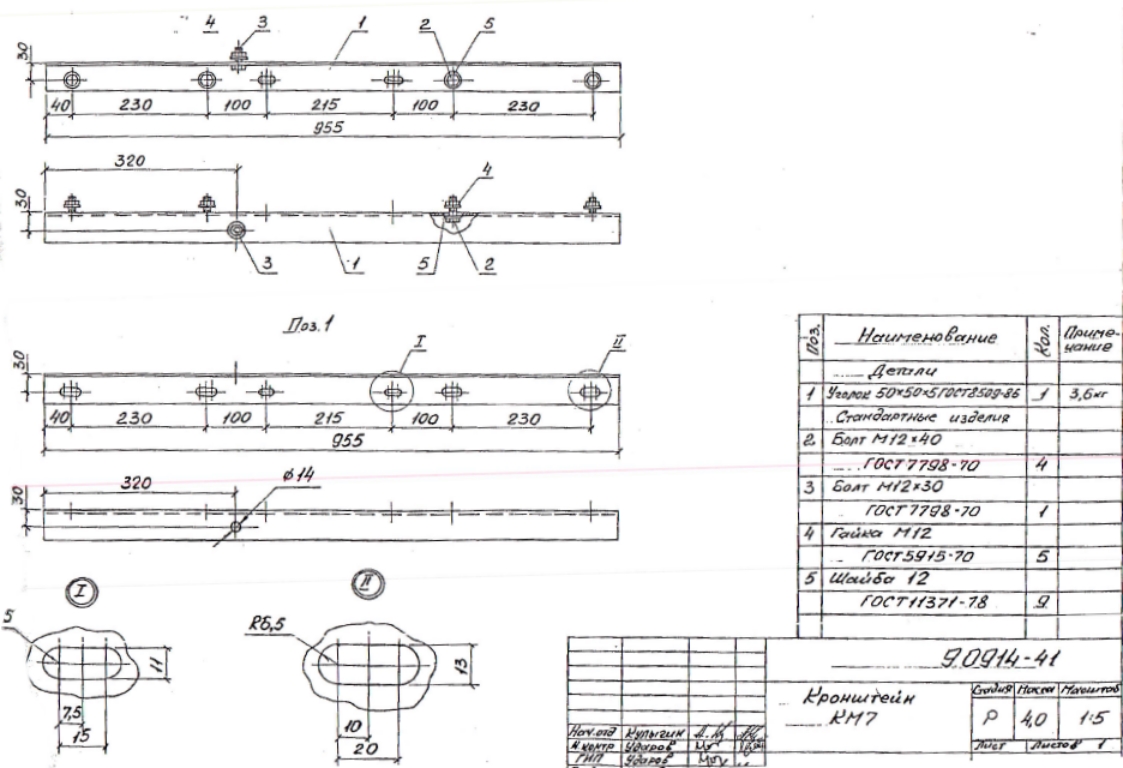 4 3 1 2 5
30
40 230 100 215 100 230
955
320
4
30
3 1 5 2
Поз.1
I II
30
40 230 100 215 100 230
955
320 ⌀14
30
I II
5 11
7,5
15
R6,5 13
10
20
Поз. Наименование Кол. Приме-
чание
Детали
1 Уголок 50×50×5 ГОСТ 8509-86 1 3,6кг
Стандартные изделия
2 Болт М12×40
ГОСТ 7798-70 4
3 Болт М12×30
ГОСТ 7798-70 1
4 Гайка М12
ГОСТ 5915-70 5
5 Шайба 12
ГОСТ 11371-78 9
90914-41
Кронштейн
КМ7
Стадия Масса Масштаб
Р 4,0 1:5
Лист Листов 1
Нач.отд Кулыгин
Н.контр Ударов
ГИП Ударов